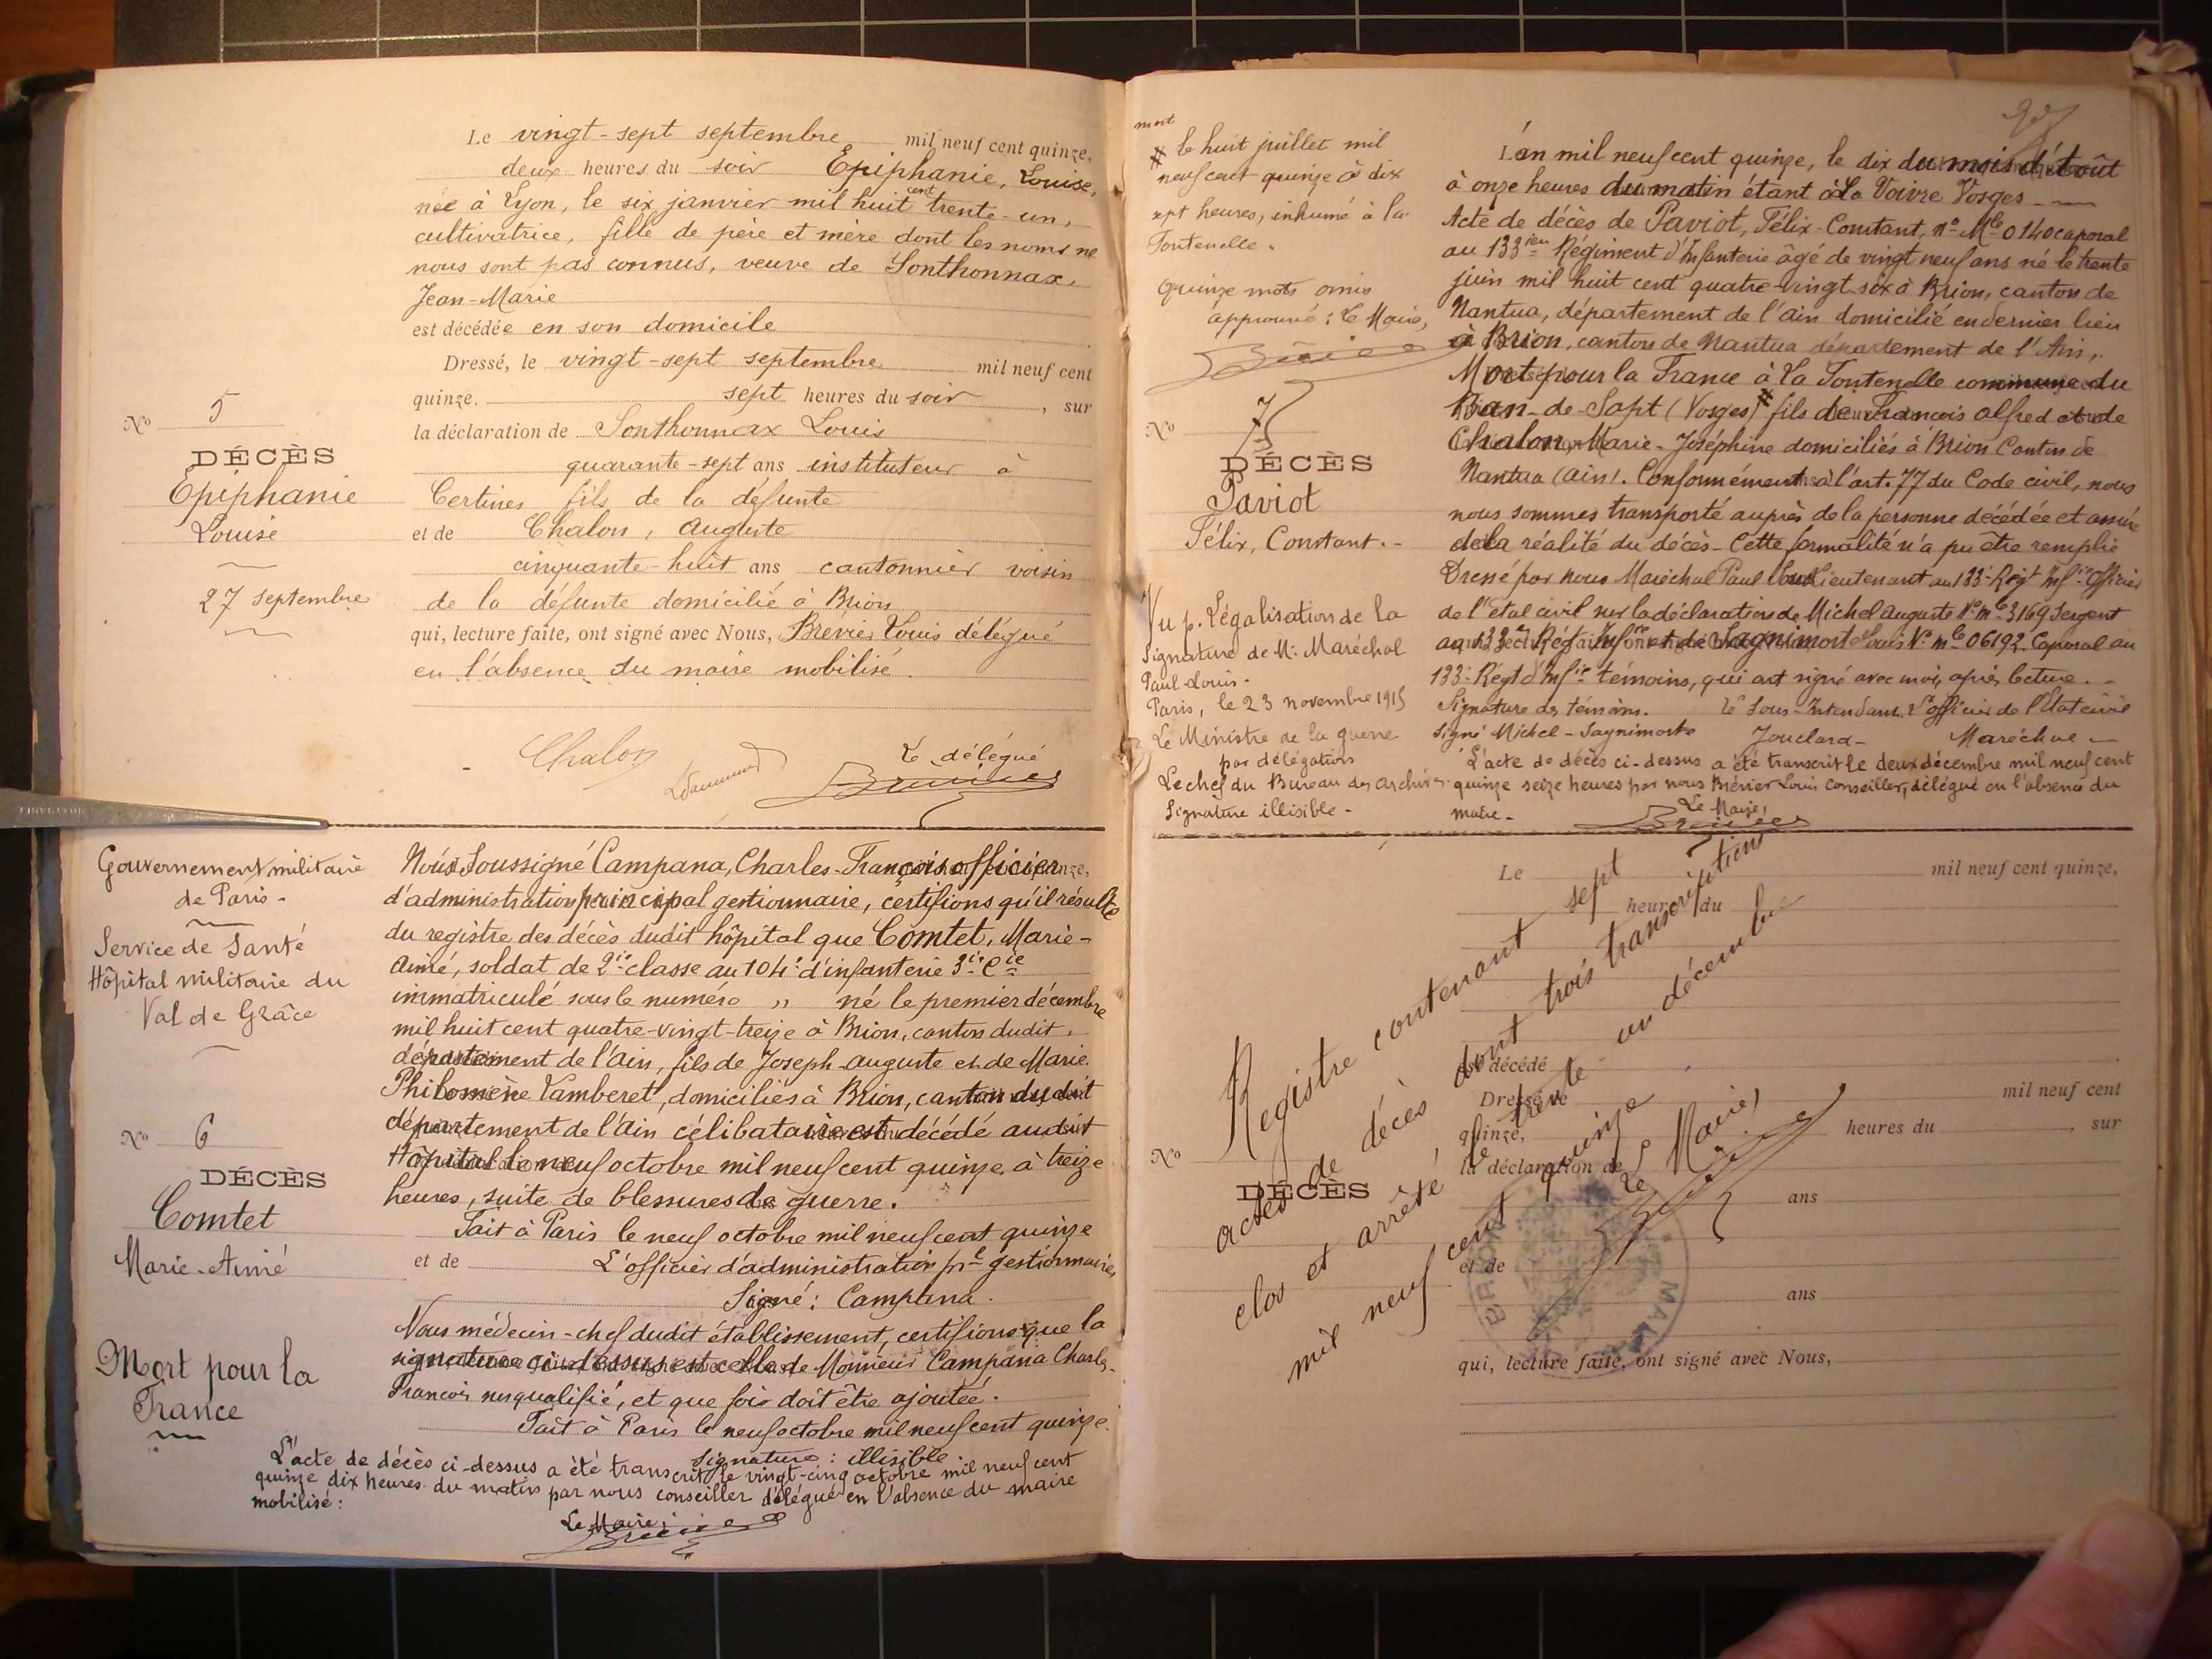 Le vingt-sept septembre mil neuf cent quinze,
deux heures du soir Epiphanie, Louise,
née à Lyon, le six janvier mil huit cent trente-un,
cultivatrice, fille de père et mère dont les noms ne
nous sont pas connus, veuve de Sonthonnax,
Jean-Marie
est décédée en son domicile
Dressé, le vingt-sept septembre mil neuf cent
quinze. sept heures du soir, sur
la déclaration de Sonthonnax Louis
quarante-sept ans instituteur à
Certines fils de la défunte
et de Chalon, Auguste
cinquante-huit ans cantonnier voisin
de la défunte domicilié à Brion
qui, lecture faite, ont signé avec Nous, Brevier Louis délégué
en l'absence du maire mobilisé.
Chalon
Le délégué
No 5
DÉCÈS
Epiphanie
Louise
27 septembre
Gouvernement militaire
de Paris -
Service de Santé
Hôpital militaire du
Val de Grâce
No 6
DÉCÈS
Comtet
Marie-Aimé
Mort pour la
France
Nous Soussigné Campana, Charles-François officier
d'administration principal gestionnaire, certifions qu'il résulte
du registre des décès dudit hôpital que Comtet, Marie-
Aimé, soldat de 2ie classe au 104e d'infanterie 3ie Cie
immatriculé sous le numéro " né le premier décembre
mil huit cent quatre-vingt-treize à Brion, canton dudit.
département de l'Ain, fils de Joseph-Auguste et de Marie
Philomène Vamberet, domiciliés à Brion, canton dudit
département de l'Ain célibataire est décédé audit
Hôpital le neuf octobre mil neuf cent quinze à treize
heures, suite de blessures de guerre.
Fait à Paris le neuf octobre mil neuf cent quinze
et de L'officier d'administration pal gestionnaire,
Signé : Campana.
Nous médecin-chef dudit établissement, certifions que la
signature ci-dessus est celle de Monsieur Campana Charles-
François susqualifié, et que foi doit être ajoutée.
Fait à Paris le neuf octobre mil neuf cent quinze.
Signature : illisible.
L'acte de décès ci-dessus a été transcrit le vingt-cinq octobre mil neuf cent
quinze dix heures du matin par nous conseiller délégué en l'absence du maire
mobilisé :
Le Maire,
mort
# le huit juillet mil
neuf cent quinze à dix
sept heures, inhumé à la
Fontenelle.
Quinze mots omis
approuvé : Le Maire,
No 7
DÉCÈS
Paviot
Félix, Constant. -
Vu p. Légalisation de la
Signature de Mr Maréchal
Paul-Louis -
Paris, le 23 novembre 1915
Le Ministre de la guerre
par délégation
Le chef du Bureau des archives
Signature illisible -
L'an mil neuf cent quinze, le dix du mois d'août
à onze heures du matin étant à La Voivre Vosges
Acte de décès de Paviot, Félix-Constant, no Mle 0140 caporal
au 133ième Régiment d'Infanterie âgé de vingt neuf ans né le trente
juin mil huit cent quatre-vingt-six à Brion, canton de
Nantua, département de l'Ain domicilié en dernier lieu
à Brion, canton de Nantua département de l'Ain,
Mort pour la France à La Fontenelle commune du
Ban-de-Sapt (Vosges) # fils de François Alfred et de
Chalon, Marie-Joséphine domiciliés à Brion Canton de
Nantua (Ain). Conformément à l'art. 77 du Code civil, nous
nous sommes transporté auprès de la personne décédée et assuré
de la réalité du décès - Cette formalité n'a pu être remplie
Dressé par nous Maréchal Paul Louis Lieutenant au 133e Régt Infie officier
de l'état civil sur la déclaration de Michel Auguste No mle 3169 Sergent
au 133e Régt Infie et de Sagnimorte Louis No mle 06192 Caporal au
133e Régt d'Infie témoins, qui ont signé avec moi, après lecture. -
Signature des témoins. Le Sous-Intendant, L'officier de l'Etat civil
Signé Michel - Sagnimorte Jouclard - Maréchal -
L'acte de décès ci-dessus a été transcrit le deux décembre mil neuf cent
quinze seize heures par nous Brévier Louis Conseiller, délégué en l'absence du
maire -
Le Maire,
Le mil neuf cent quinze,
heures du
est décédé
Dressé, le mil neuf cent
quinze, heures du, sur
la déclaration de
ans
et de
ans
qui, lecture faite, ont signé avec Nous,
No
DÉCÈS
Registre contenant sept
actes de décès dont trois transcriptions
clos et arrêté, le trente un décembre
mil neuf cent quinze
Le Maire,